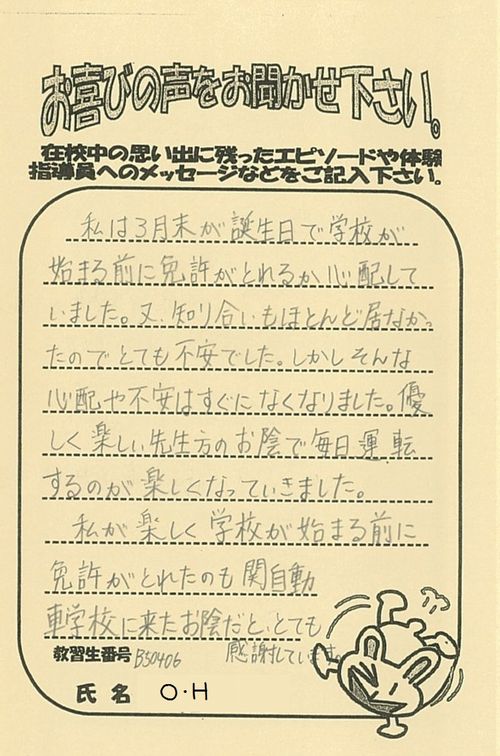 お喜びの声をお聞かせ下さい。
在校中の思い出に残ったエピソードや体験
指導員へのメッセージなどをご記入下さい。
私は3月末が誕生日で学校が
始まる前に免許がとれるか心配して
いました。又、知り合いもほとんど居なかっ
たのでとても不安でした。しかしそんな
心配や不安はすぐになくなりました。優
しく楽しい先生方のお陰で毎日運転
するのが楽しくなっていきました。
私が楽しく学校が始まる前に
免許がとれたのも関自動
車学校に来たお陰だと、とても
感謝しています。
教習生番号 B50406
氏名 O・H